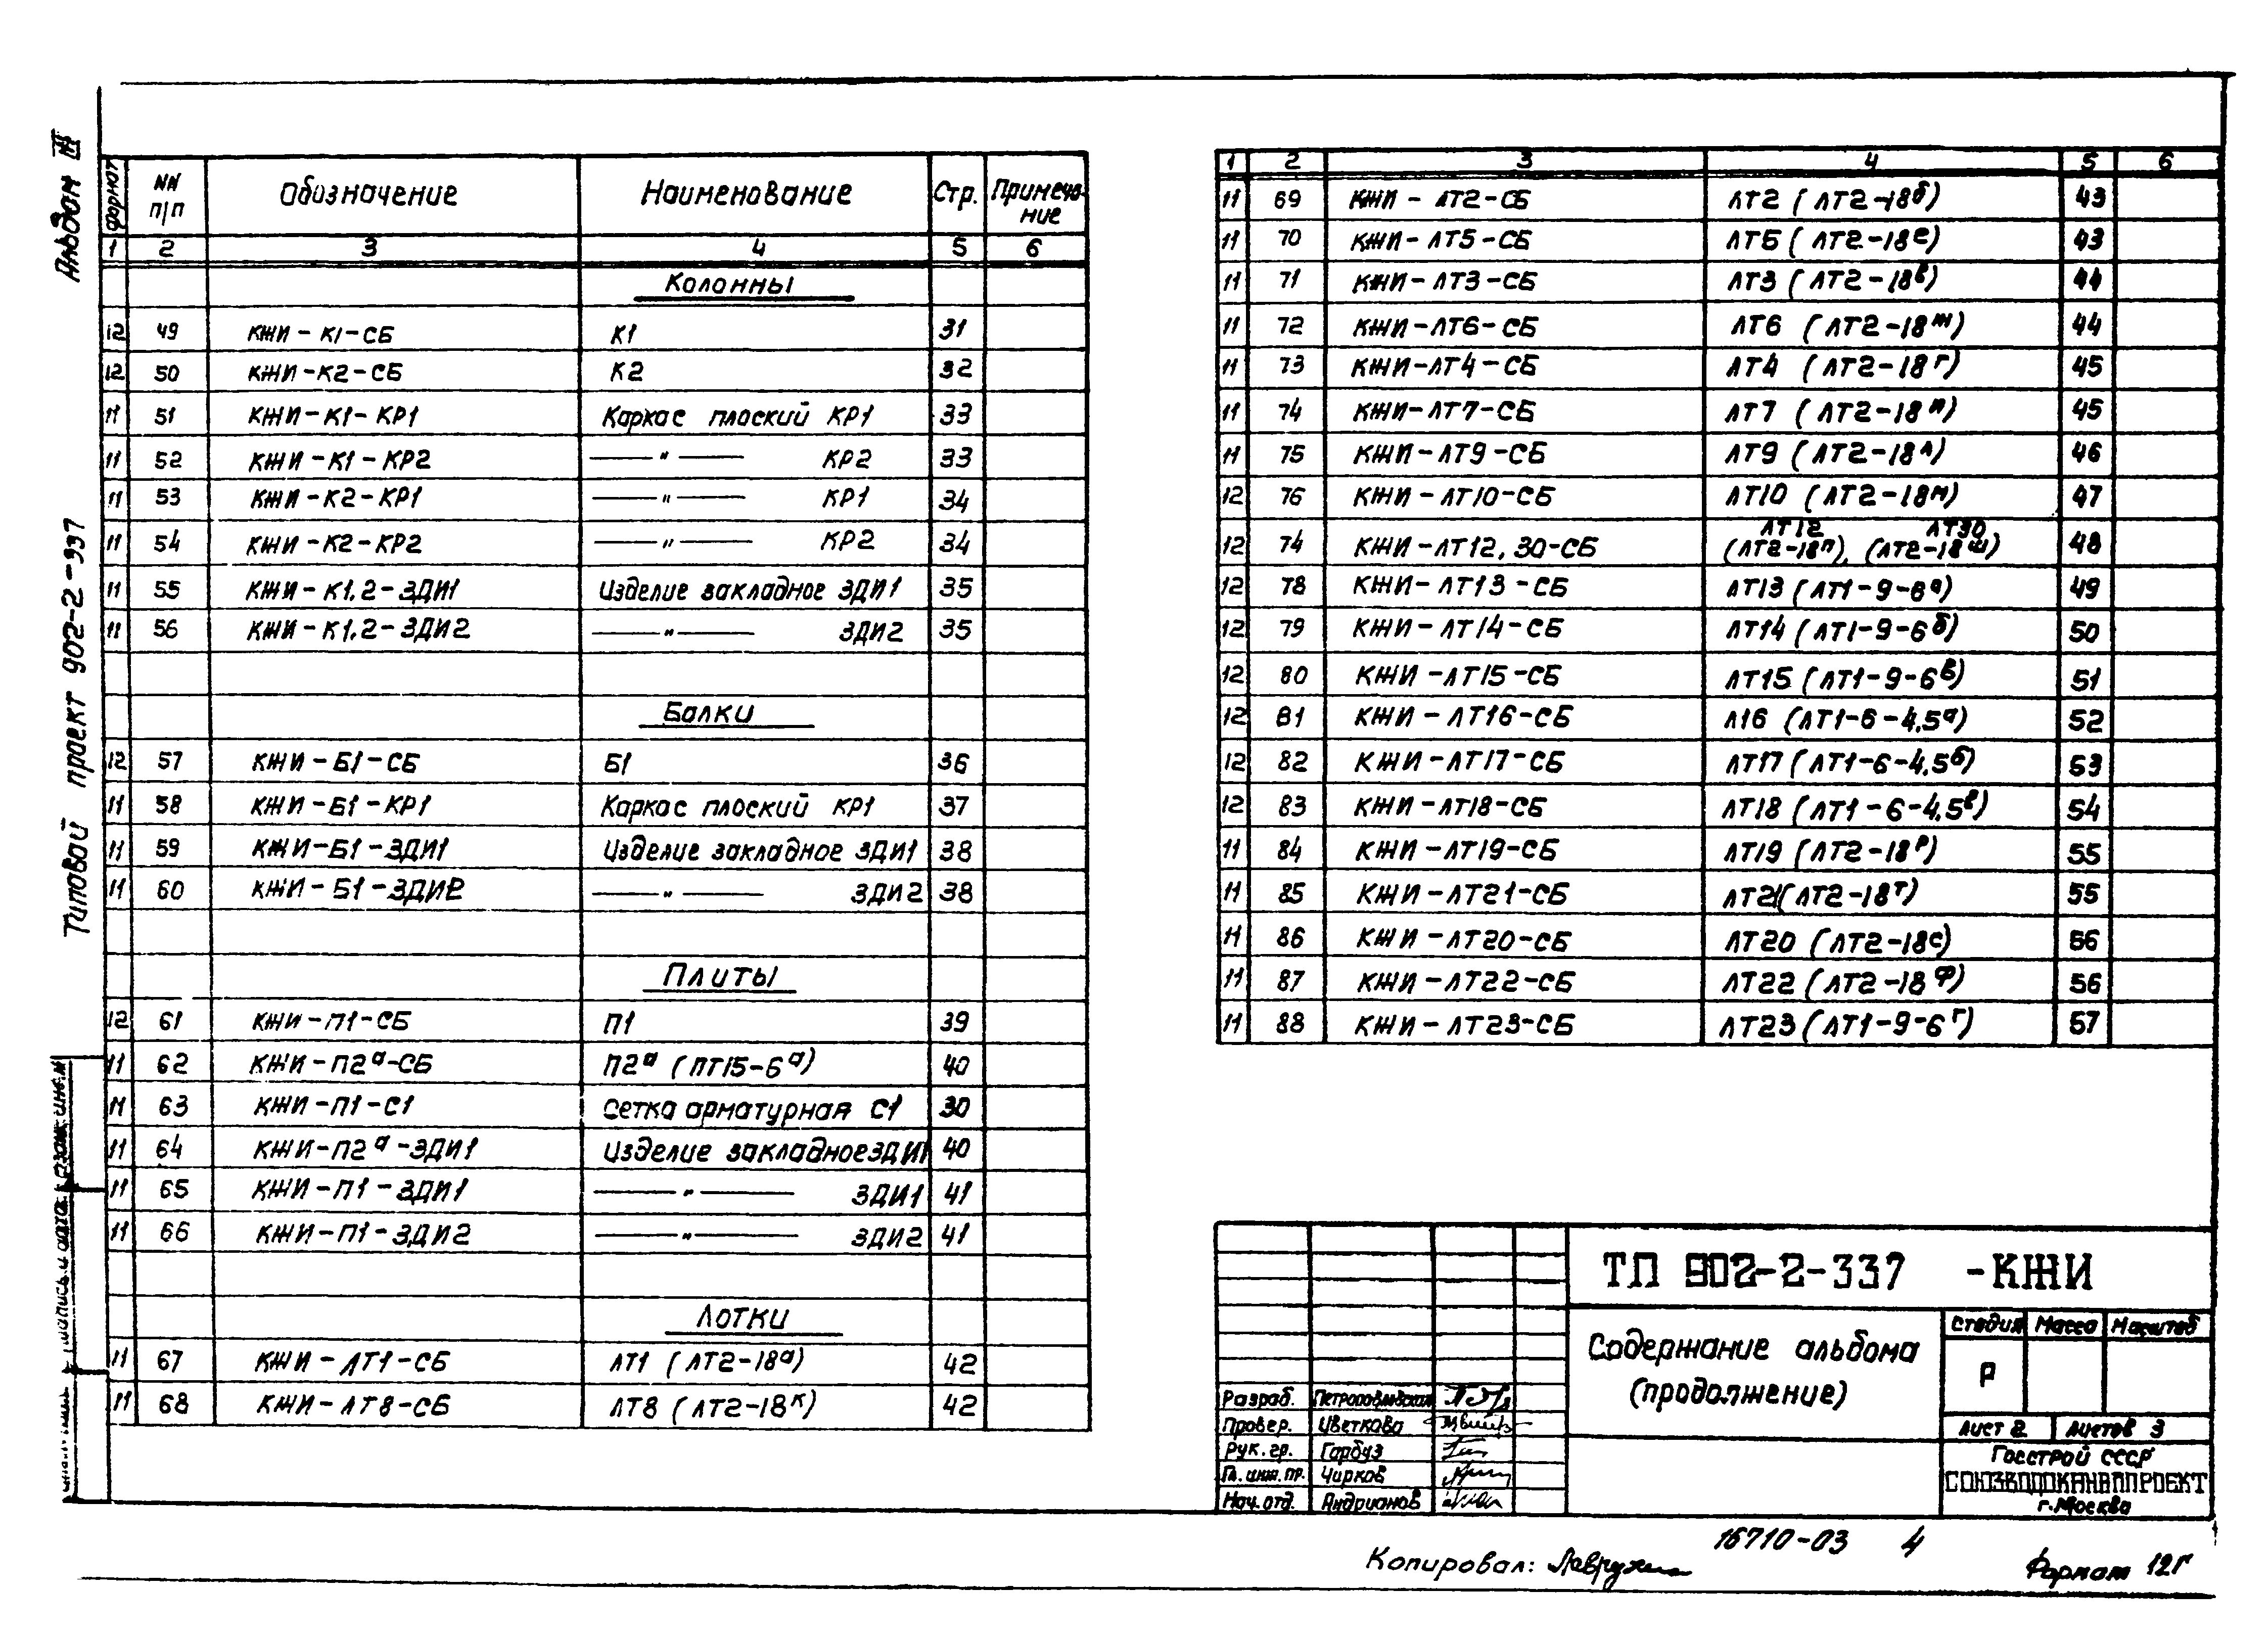 Альбом III
Типовой проект 902-2-337
Формат | NN п/п | Обозначение | Наименование | Стр. | Примеча-ние
1 | 2 | 3 | 4 | 5 | 6
Колонны
12 | 49 | КЖИ-К1-СБ | К1 | 31
12 | 50 | КЖИ-К2-СБ | К2 | 32
11 | 51 | КЖИ-К1-КР1 | Каркас плоский КР1 | 33
11 | 52 | КЖИ-К1-КР2 | —"— КР2 | 33
11 | 53 | КЖИ-К2-КР1 | —"— КР1 | 34
11 | 54 | КЖИ-К2-КР2 | —"— КР2 | 34
11 | 55 | КЖИ-К1,2-ЗДИ1 | Изделие закладное ЗДИ1 | 35
11 | 56 | КЖИ-К1,2-ЗДИ2 | —"— ЗДИ2 | 35
Балки
12 | 57 | КЖИ-Б1-СБ | Б1 | 36
11 | 58 | КЖИ-Б1-КР1 | Каркас плоский КР1 | 37
11 | 59 | КЖИ-Б1-ЗДИ1 | Изделие закладное ЗДИ1 | 38
11 | 60 | КЖИ-Б1-ЗДИ2 | —"— ЗДИ2 | 38
Плиты
12 | 61 | КЖИ-П1-СБ | П1 | 39
11 | 62 | КЖИ-П2ª-СБ | П2ª (ПТ15-6ª) | 40
11 | 63 | КЖИ-П1-С1 | Сетка арматурная С1 | 30
11 | 64 | КЖИ-П2ª-ЗДИ1 | Изделие закладное ЗДИ1 | 40
11 | 65 | КЖИ-П1-ЗДИ1 | —"— ЗДИ1 | 41
11 | 66 | КЖИ-П1-ЗДИ2 | —"— ЗДИ2 | 41
Лотки
11 | 67 | КЖИ-ЛТ1-СБ | ЛТ1 (ЛТ2-18а) | 42
11 | 68 | КЖИ-ЛТ8-СБ | ЛТ8 (ЛТ2-18к) | 42
1 | 2 | 3 | 4 | 5 | 6
11 | 69 | КЖИ-ЛТ2-СБ | ЛТ2 (ЛТ2-18б) | 43
11 | 70 | КЖИ-ЛТ5-СБ | ЛТ5 (ЛТ2-18е) | 43
11 | 71 | КЖИ-ЛТ3-СБ | ЛТ3 (ЛТ2-18в) | 44
11 | 72 | КЖИ-ЛТ6-СБ | ЛТ6 (ЛТ2-18ж) | 44
11 | 73 | КЖИ-ЛТ4-СБ | ЛТ4 (ЛТ2-18г) | 45
11 | 74 | КЖИ-ЛТ7-СБ | ЛТ7 (ЛТ2-18и) | 45
11 | 75 | КЖИ-ЛТ9-СБ | ЛТ9 (ЛТ2-18л) | 46
12 | 76 | КЖИ-ЛТ10-СБ | ЛТ10 (ЛТ2-18м) | 47
12 | 74 | КЖИ-ЛТ12,30-СБ | ЛТ12 (ЛТ2-18п), ЛТ30 (ЛТ2-18ш) | 48
12 | 78 | КЖИ-ЛТ13-СБ | ЛТ13 (ЛТ1-9-6а) | 49
12 | 79 | КЖИ-ЛТ14-СБ | ЛТ14 (ЛТ1-9-6б) | 50
12 | 80 | КЖИ-ЛТ15-СБ | ЛТ15 (ЛТ1-9-6в) | 51
12 | 81 | КЖИ-ЛТ16-СБ | Л16 (ЛТ1-6-4,5а) | 52
12 | 82 | КЖИ-ЛТ17-СБ | ЛТ17 (ЛТ1-6-4,5б) | 53
12 | 83 | КЖИ-ЛТ18-СБ | ЛТ18 (ЛТ1-6-4,5в) | 54
11 | 84 | КЖИ-ЛТ19-СБ | ЛТ19 (ЛТ2-18р) | 55
11 | 85 | КЖИ-ЛТ21-СБ | ЛТ21 (ЛТ2-18т) | 55
11 | 86 | КЖИ-ЛТ20-СБ | ЛТ20 (ЛТ2-18с) | 56
11 | 87 | КЖИ-ЛТ22-СБ | ЛТ22 (ЛТ2-18ф) | 56
11 | 88 | КЖИ-ЛТ23-СБ | ЛТ23 (ЛТ1-9-6г) | 57
ТП 902-2-337 -КЖИ
Содержание альбома
(продолжение)
Стадия | Масса | Масштаб
Р
Лист 2 | Листов 3
Госстрой СССР
СОЮЗВОДОКАНАЛПРОЕКТ
г. Москва
Разраб. Петропавловская
Провер. Цветкова
Рук. гр. Гарбуз
Гл. инж. пр. Чирков
Нач. отд. Андрианов
16710-03 4
Копировал:
Формат 12Г